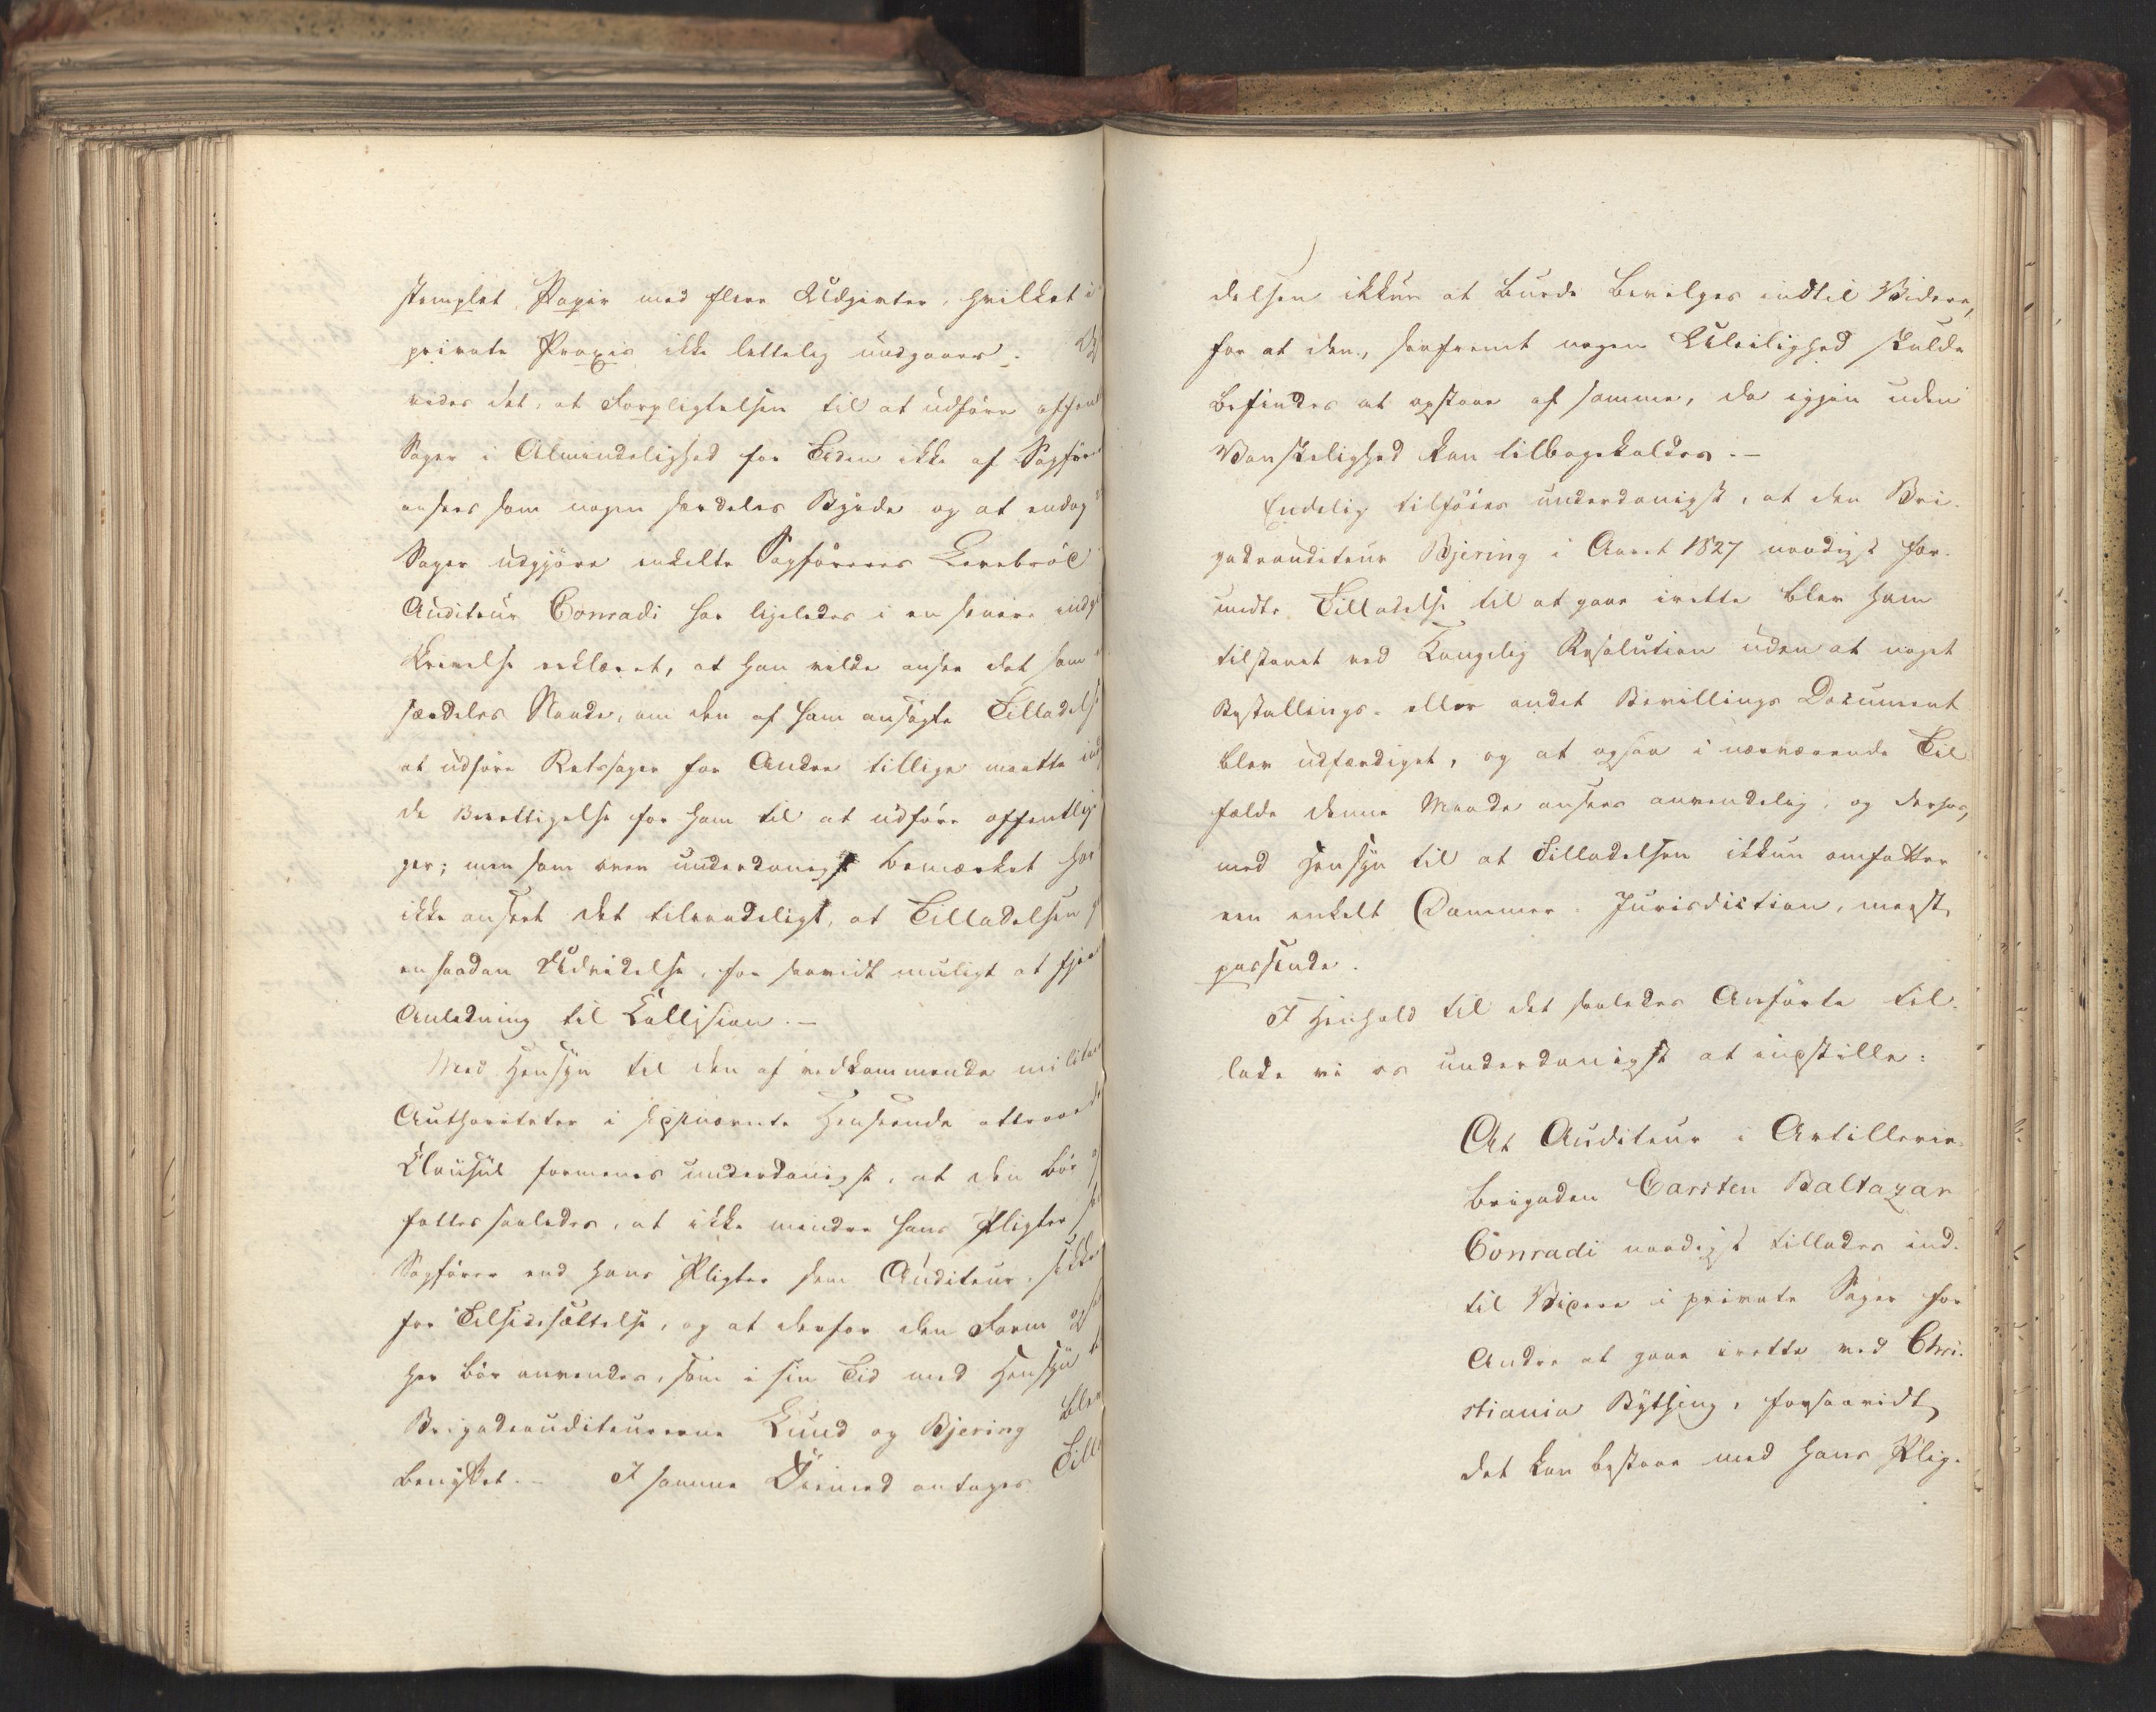 stemplet Papir med flere Udgivter, hvilket i
private Praxis ikke lettelig undgaaes.
vides det, at Forpligtelsen til at udføre offent
Sager i Almindelighed for Tiden ikke af Sagfører
ansees som nogen særdeles Byrde og at endog
Sager udgjøre enkelte Sagføreres Levebrød
Auditeur Conradi har ligeledes i en senere indg
Skrivelse erklæret, at han vilde ansee det som
særdeles Naade, om den af ham ansøgte Tilladelse
at udføre Retssager for Andre tillige maatte in
de Berettigelse for ham til at udføre offentlig
ger; men som oven underdanigst bemærket har
ikke anseet det tilraadeligt, at Tilladelsen
en saadan Udvidelse, for saavidt muligt at fjer
Anledning til Collision.–
Med Hensyn til den af vedkommende militær
Authoriteter i sidstnævnte Henseende attraaede
Clausul formenes underdanigst, at den bør
fattes saaledes, at ikke mindre hans Pligter
Sagfører end hans Pligter som Auditeur, sikkr
for Tilsidesættelse, og at derfor den Form og
her bør anvendes, som i sin Tid med Hensyn t
Brigadeauditeurerne Lund og Bjering blev
benyttet.– I samme Øiemed antages Till
delsen ikkun at burde bevilges indtil Videre,
for at den, saafremt nogen Uleilighed skulde
befindes at opstaae af samme, da igjen uden
Vanskelighed kan tilbagekaldes.–
Endelig tilføies underdanigst, at den Bri-
gadeauditeur Bjering i Aaret 1827 naadigst for-
undte Tilladelse til at gaae irette blev ham
tilstaaet ved Kongelig Resolution uden at noget
Bestallings- eller andet Bevillings Document
blev udfærdiget, og at ogsaa i nærværende Til-
fælde denne Maade ansees anvendelig, og derhos,
med Hensyn til at Tilladelsen ikkun omfatter
een enkelt Dommer-Jurisdiction, meest
passende.
I Henhold til det saaledes Anførte til-
lade vi os underdanigst at indstille:
At Auditeur i Artillerie-
brigaden Carsten Baltazar
Conradi naadigst tillades ind-
til Videre i private Sager for
Andre at gaae irette ved Chri-
stiania Bything, forsaavidt
det kan bestaae med hans Plig-